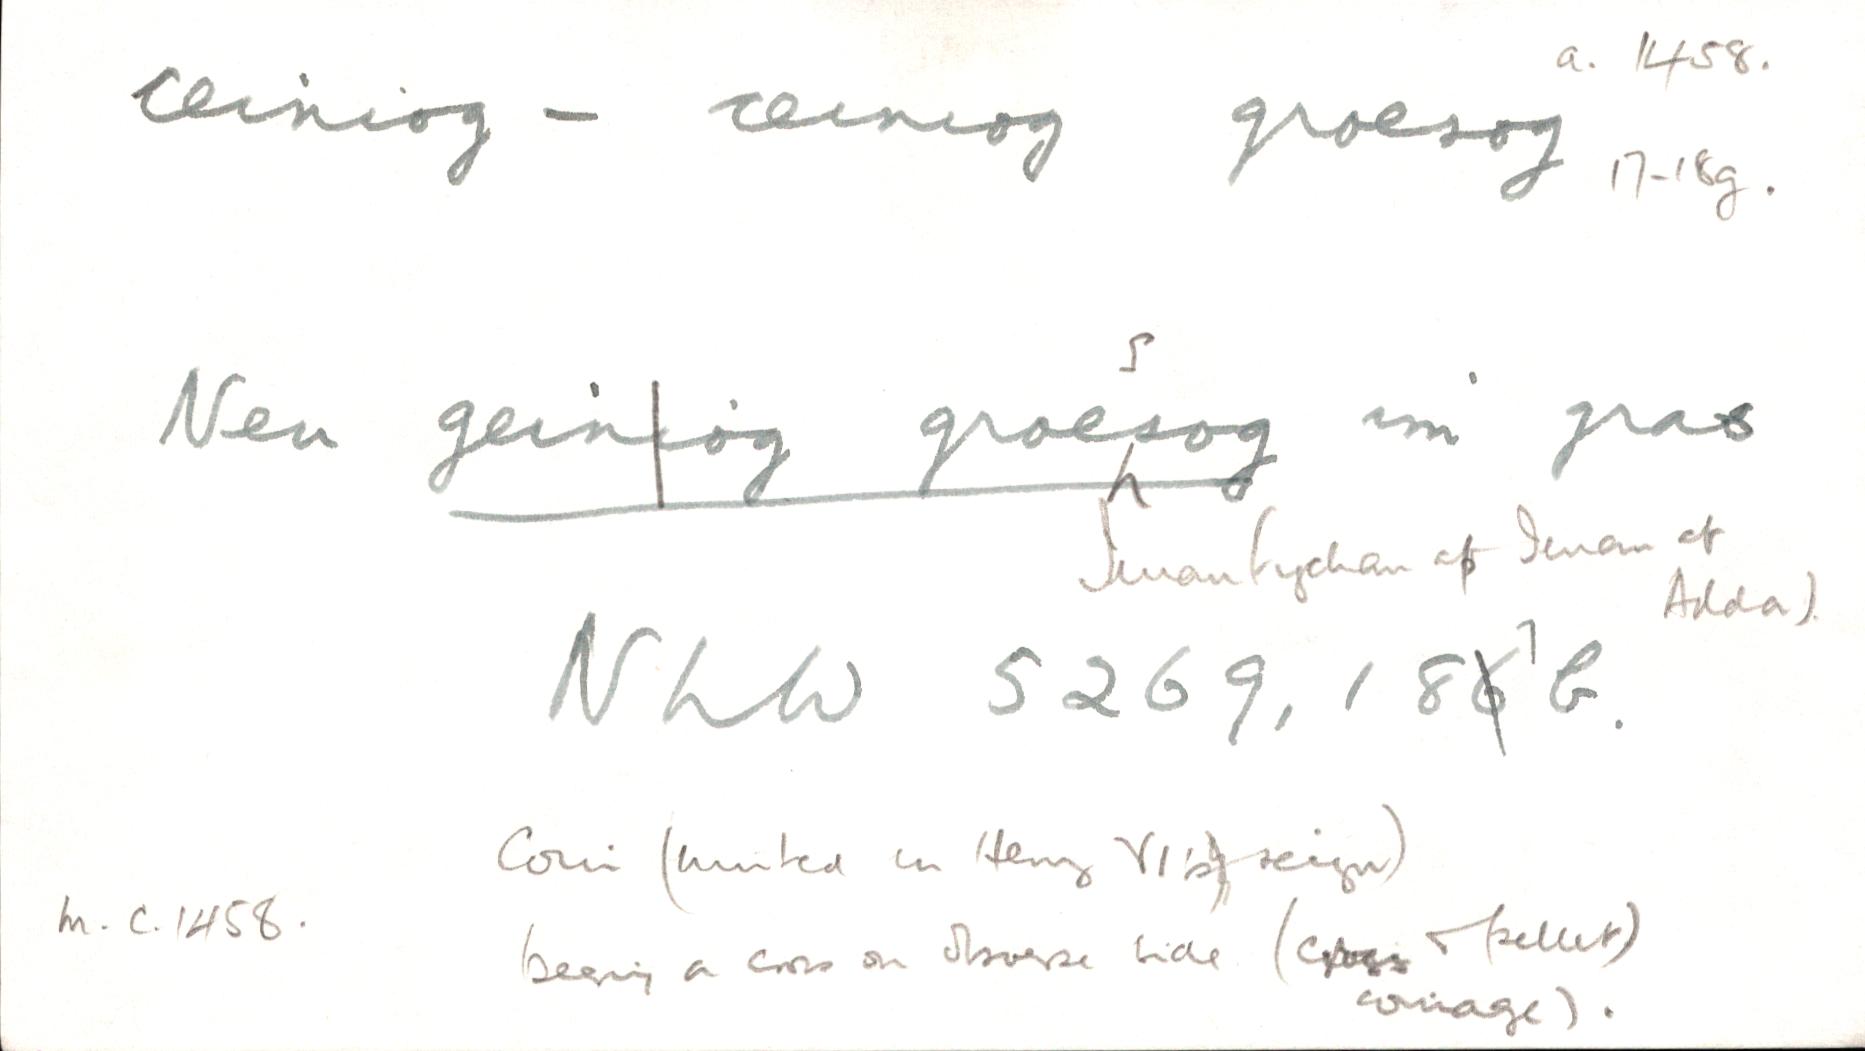 a. 1458.
ceiniog - ceiniog groesog
17-18g.
s
Neu geiniog groesog im gras
h
(Ieuan Fychan ap Ieuan at
Adda).
NLW 5269, 187 b.
Coin (minted in Henry VI's reign)
m. c. 1458.
bearing a cross on obverse side (cross & pellet)
coinage).